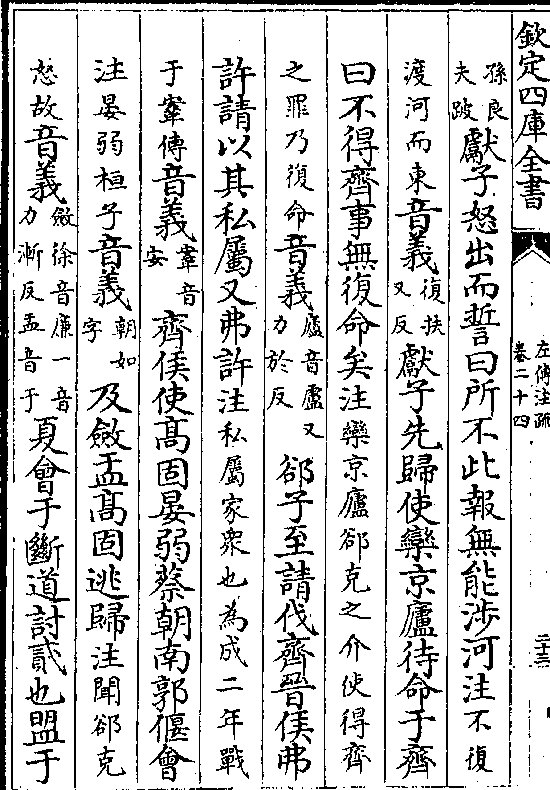 欽定四庫全書
左傳注疏
卷二十四
二十三
孫良
夫跛獻子怒出而誓曰所不此報無能涉河注不復
渡河而東音義復扶
又反獻子先歸使欒京廬待命于齊
曰不得齊事無復命矣注欒京廬郤克之介使得齊
之罪乃復命音義廬音盧又
力於反郤子至請伐齊晉侯弗
許請以其私屬又弗許注私屬家衆也為成二年戰
于鞌傳音義鞌音
安齊侯使髙固晏弱蔡朝南郭偃會
注晏弱桓子音義朝如
字及斂盂髙固逃歸注聞郤克
怒故音義斂徐音廉一音
力漸反盂音于夏會于斷道討貳也盟于